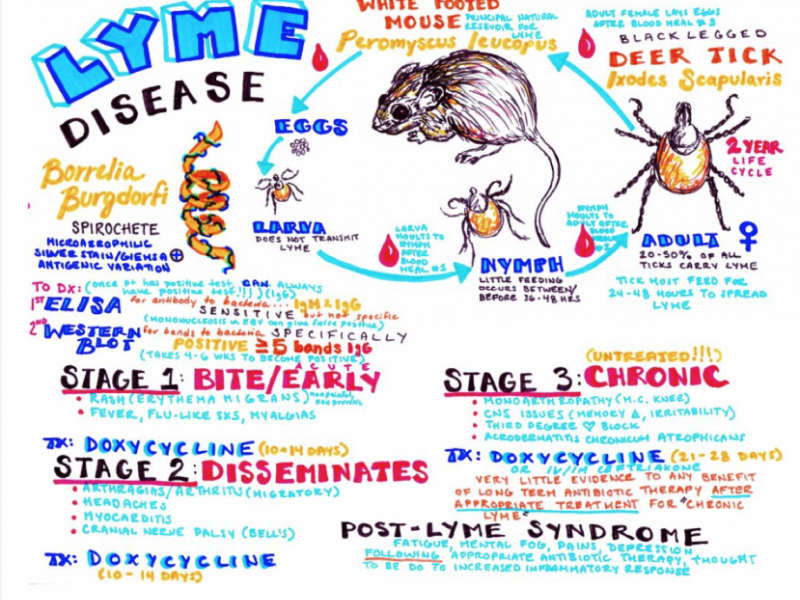 LYME
DISEASE
WHITE FOOTED
MOUSE
PRINCIPAL NATURAL
RESEVOIR FOR
LYME
Peromyscus leucopus
ADULT FEMALE LAYS EGGS
AFTER BLOOD MEAL #3
BLACK LEGGED
DEER TICK
Ixodes Scapularis
2 YEAR
LIFE
CYCLE
EGGS
LARVA
DOES NOT TRANSMIT
LYME
LARVA
MOULTS TO
NYMPH
AFTER
BLOOD
MEAL #1
NYMPH
LITTLE FEEDING
OCCURS BETWEEN/
BEFORE 36-48 HRS
NYMPH
MOULTS TO
ADULT AFTER
BLOOD
MEAL #2
ADULT ♀
20-50% OF ALL
TICKS CARRY LYME
TICK MUST FEED FOR
24-48 HOURS TO SPREAD
LYME
Borrelia
Burgdorfi
SPIROCHETE
MICROAEROPHILIC
SILVER STAIN/GIEMSA ⊕
ANTIGENIC VARIATION
TO DX: (once pt has positive test, CAN ALWAYS
have positive test!!!) (IgG)
1ST ELISA for antibody to bacteria... IgM & IgG
SENSITIVE but not specific
(MONONUCLEOSIS EBV can give false positive)
2ND WESTERN BLOT for bands to bacteria SPECIFICALLY
POSITIVE ≥5 bands IgG
(TAKES 4-6 WKS TO BECOME POSITIVE)
STAGE 1: BITE/EARLY
ACUTE
• RASH (ERYTHEMA MIGRANS)
• FEVER, FLU-LIKE SXS, MYALGIAS
TX: DOXYCYCLINE (10-14 DAYS)
STAGE 2: DISSEMINATES
• ARTHRAGIAS/ARTHRITIS (MIGRATORY)
• HEADACHES
• MYOCARDITIS
• CRANIAL NERVE PALSY (BELL'S)
TX: DOXYCYCLINE
(10-14 DAYS)
(UNTREATED!!!)
STAGE 3: CHRONIC
• MONOARTHROPATHY (M.C. KNEE)
• CNS ISSUES (MEMORY Δ, IRRITABILITY)
• THIRD DEGREE ♡ BLOCK
• ACRODERMATITIS CHRONICUM ATROPHICANS
TX: DOXYCYCLINE (21-28 DAYS)
OR IV/IM CEFTRIAXONE
VERY LITTLE EVIDENCE TO ANY BENEFIT
OF LONG TERM ANTIBIOTIC THERAPY AFTER
APPROPRIATE TREATMENT FOR "CHRONIC
LYME"
POST-LYME SYNDROME
FATIGUE, MENTAL FOG, PAINS, DEPRESSION
FOLLOWING APPROPRIATE ANTIBIOTIC THERAPY, THOUGHT
TO BE DO TO INCREASED INFLAMMATORY RESPONSE